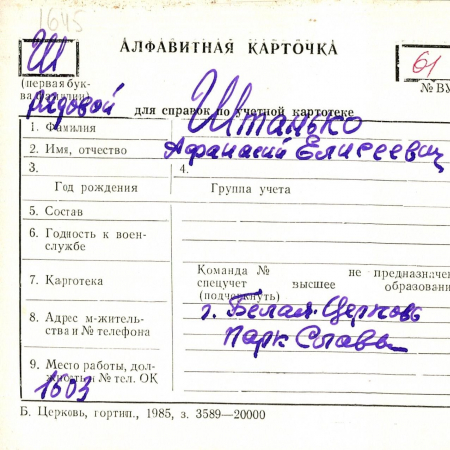 1645
Ш
АЛФАВИТНАЯ КАРТОЧКА
61
(первая бук-
ва фамилии)
№ ВУ
рядовой
для справок по учетной картотеке
1. Фамилия
Штанько
2. Имя, отчество
Афанасий Елисеевич
3.
4.
Год рождения
Группа учета
5. Состав
6. Годность к воен-
службе
7. Карготека
Команда № не предназначен
спецучет высшее образовани
(подчеркнуть)
8. Адрес м-житель-
ства и № телефона
г. Белая-Церковь
Парк Славы
9. Место работы, дол-
жность и № тел. ОК
1603
Б. Церковь, гортип., 1985, з. 3589—20000